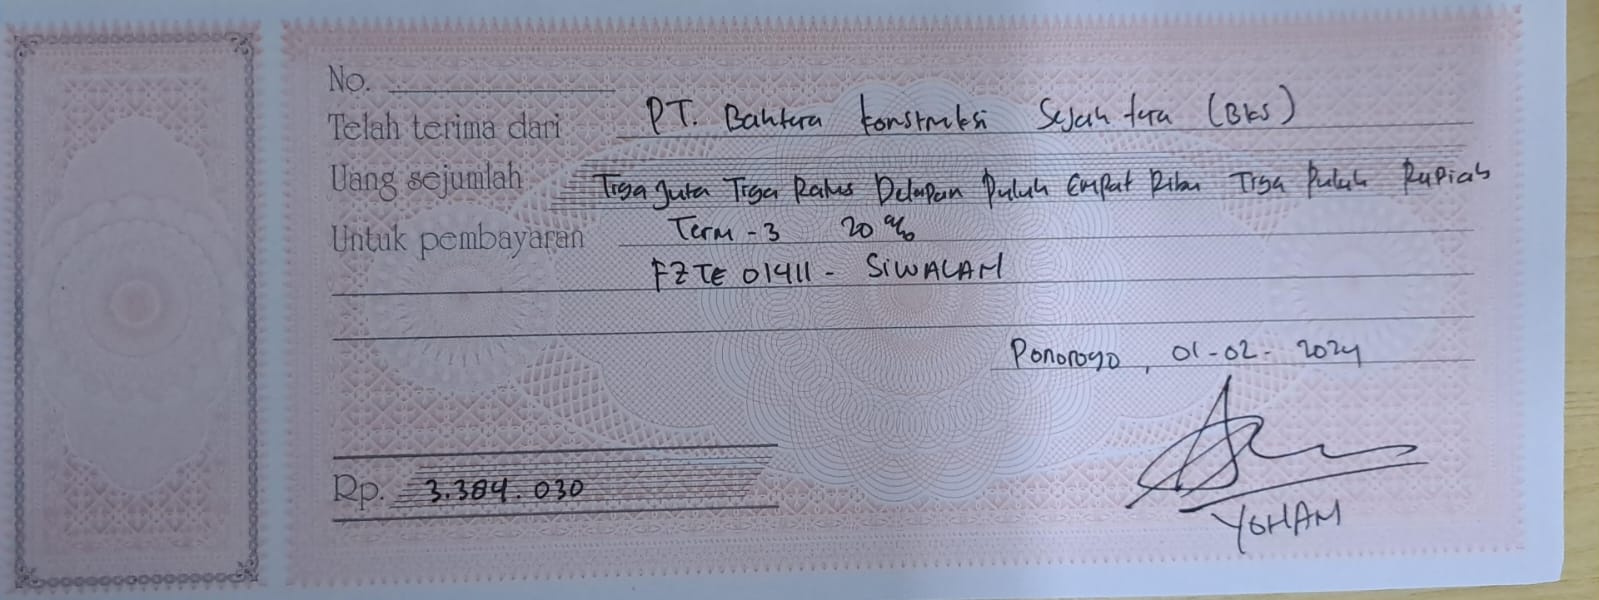 No.
Telah terima dari PT. Bahtera Konstruksi Sejahtera (BKS)
Uang sejumlah Tiga Juta Tiga Ratus Delapan Puluh Empat Ribu Tiga Puluh Rupiah
Untuk pembayaran Term - 3 20 %
FZTE 01411 - SIWALAN
Ponorogo, 01-02-2024
Rp. 3.384.030
YOHAN